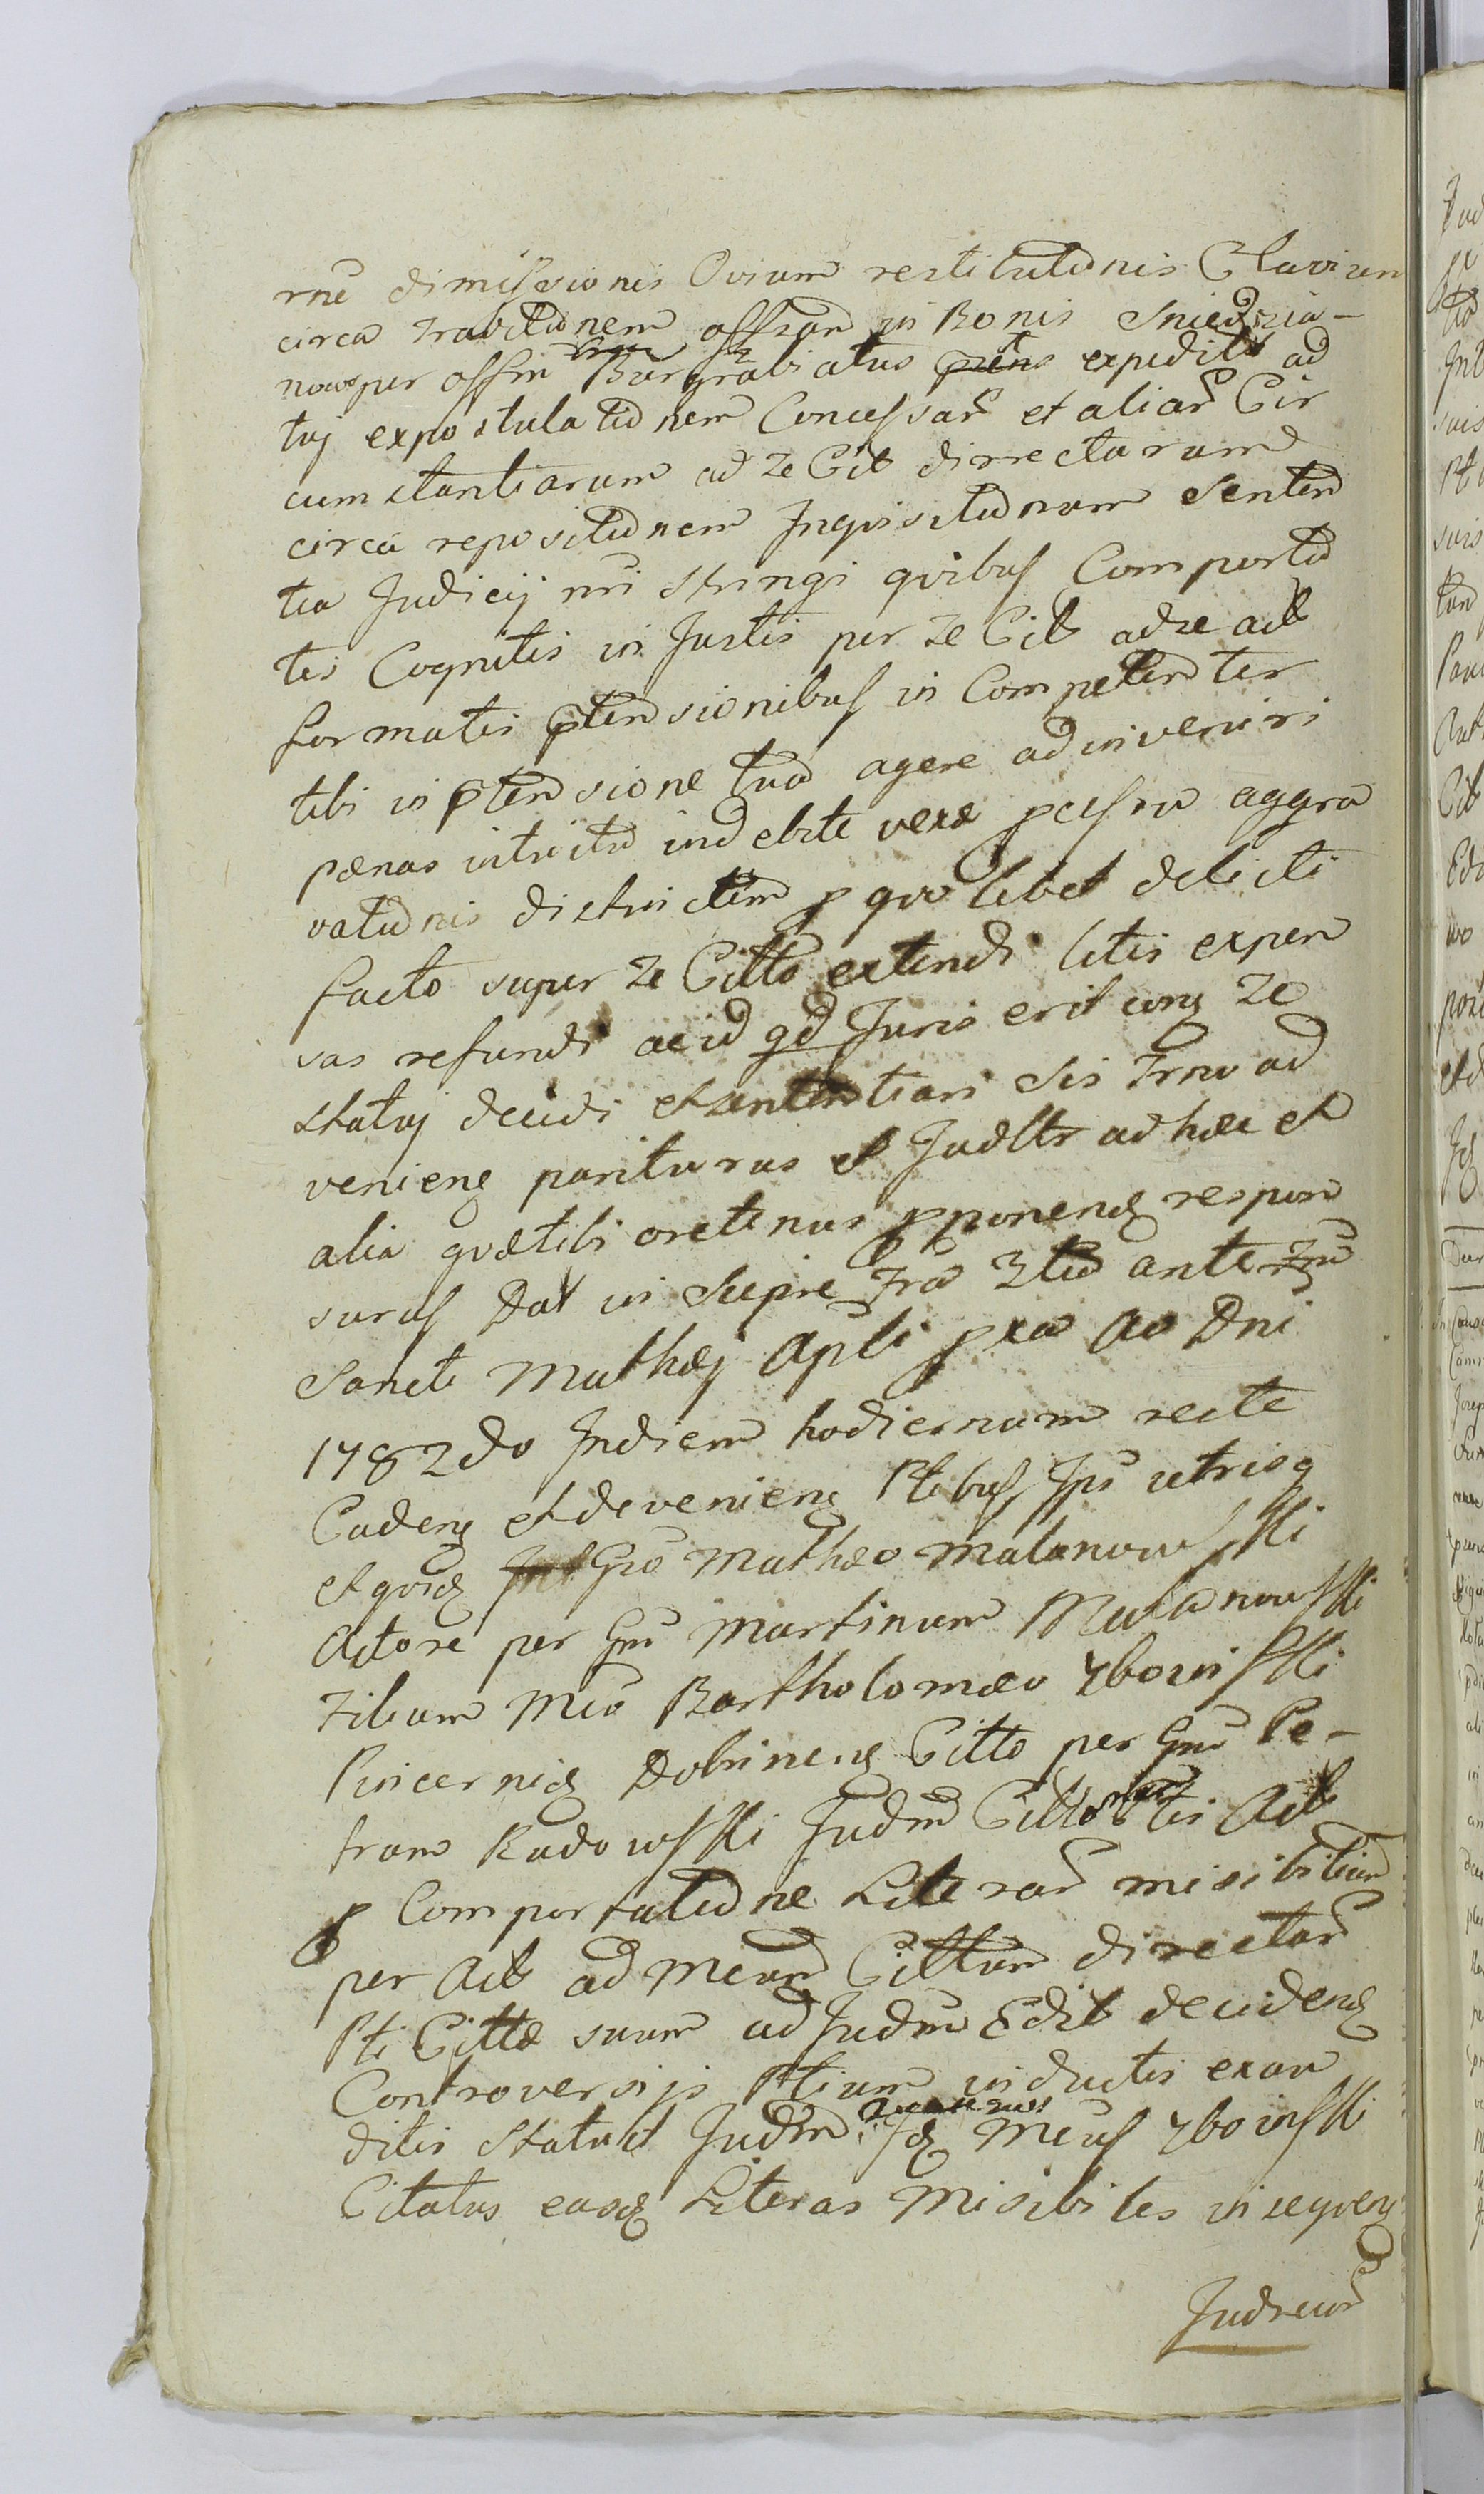 rne dimissionis Ovium restitutionis Clavium
circa traditionem offrand in Bonis Sniedzia-
nowo per offm Burgrabiatus expedit ad
tuj expostulationem Concessar et aliar Cir
cumstantiarum ad te Cit directarum
circa repositionem Inqvisitionum Senten
tia Judicij nri stringi qvibus Comporta
tis Cognitis in Justis per te Cit ad se act
formatis ptensionibus in Competenter
tibi in ptensione tua agere adinveniri
pænas intuitu indebite vexæ pcusso aggra
vationis districtim p qvo libet delicti
facto super te Citto extendi litis expen
sas refundi ac id qd Juris erit cong te
statuj decidi et sententiari Sis Trno ad
venieng pariturus et Judltr ad hæc et
alia qvætibi oretenus pponend respon
surus Dat in Lipne Fra 3tia ante Fm
Sancti Mathæj Apli pxa Ao Dni
1782do Indiem hodiernum recte
Cadeng et devenieng Ptibus Ips utrisq
et qvid Gso Mathæo Malanowski
Actore per Gm Martinum Malanowski
Filium Mco Bartholomæo Zboinski
Pincernid Dobrineng Citto per Gm Pe-
trum Radowski Judm Citto Ptis Act
p Comportatione Literar misibilium
per Act ad Mcum Cittum directar
Pti Cittæ suum ad Judm Edit decidend
Controversijs Ptium inductis exau
ditis Statuit Judm Id Mcus Zboinski
Citatus easd Literas Misibiles in seqveng
Judicior